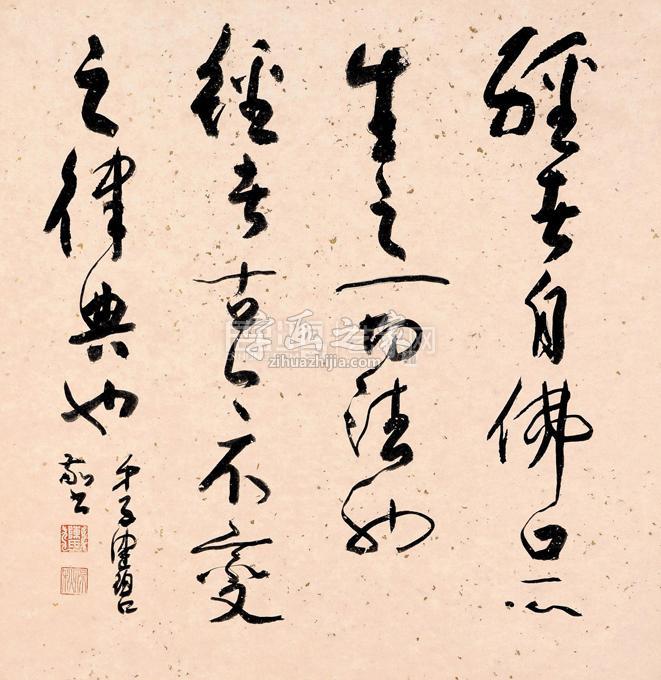 經者自佛口所
生之一切法
經者古今不變
之律典也
弟子
敬書
字画之家网
zihuazhijia.com